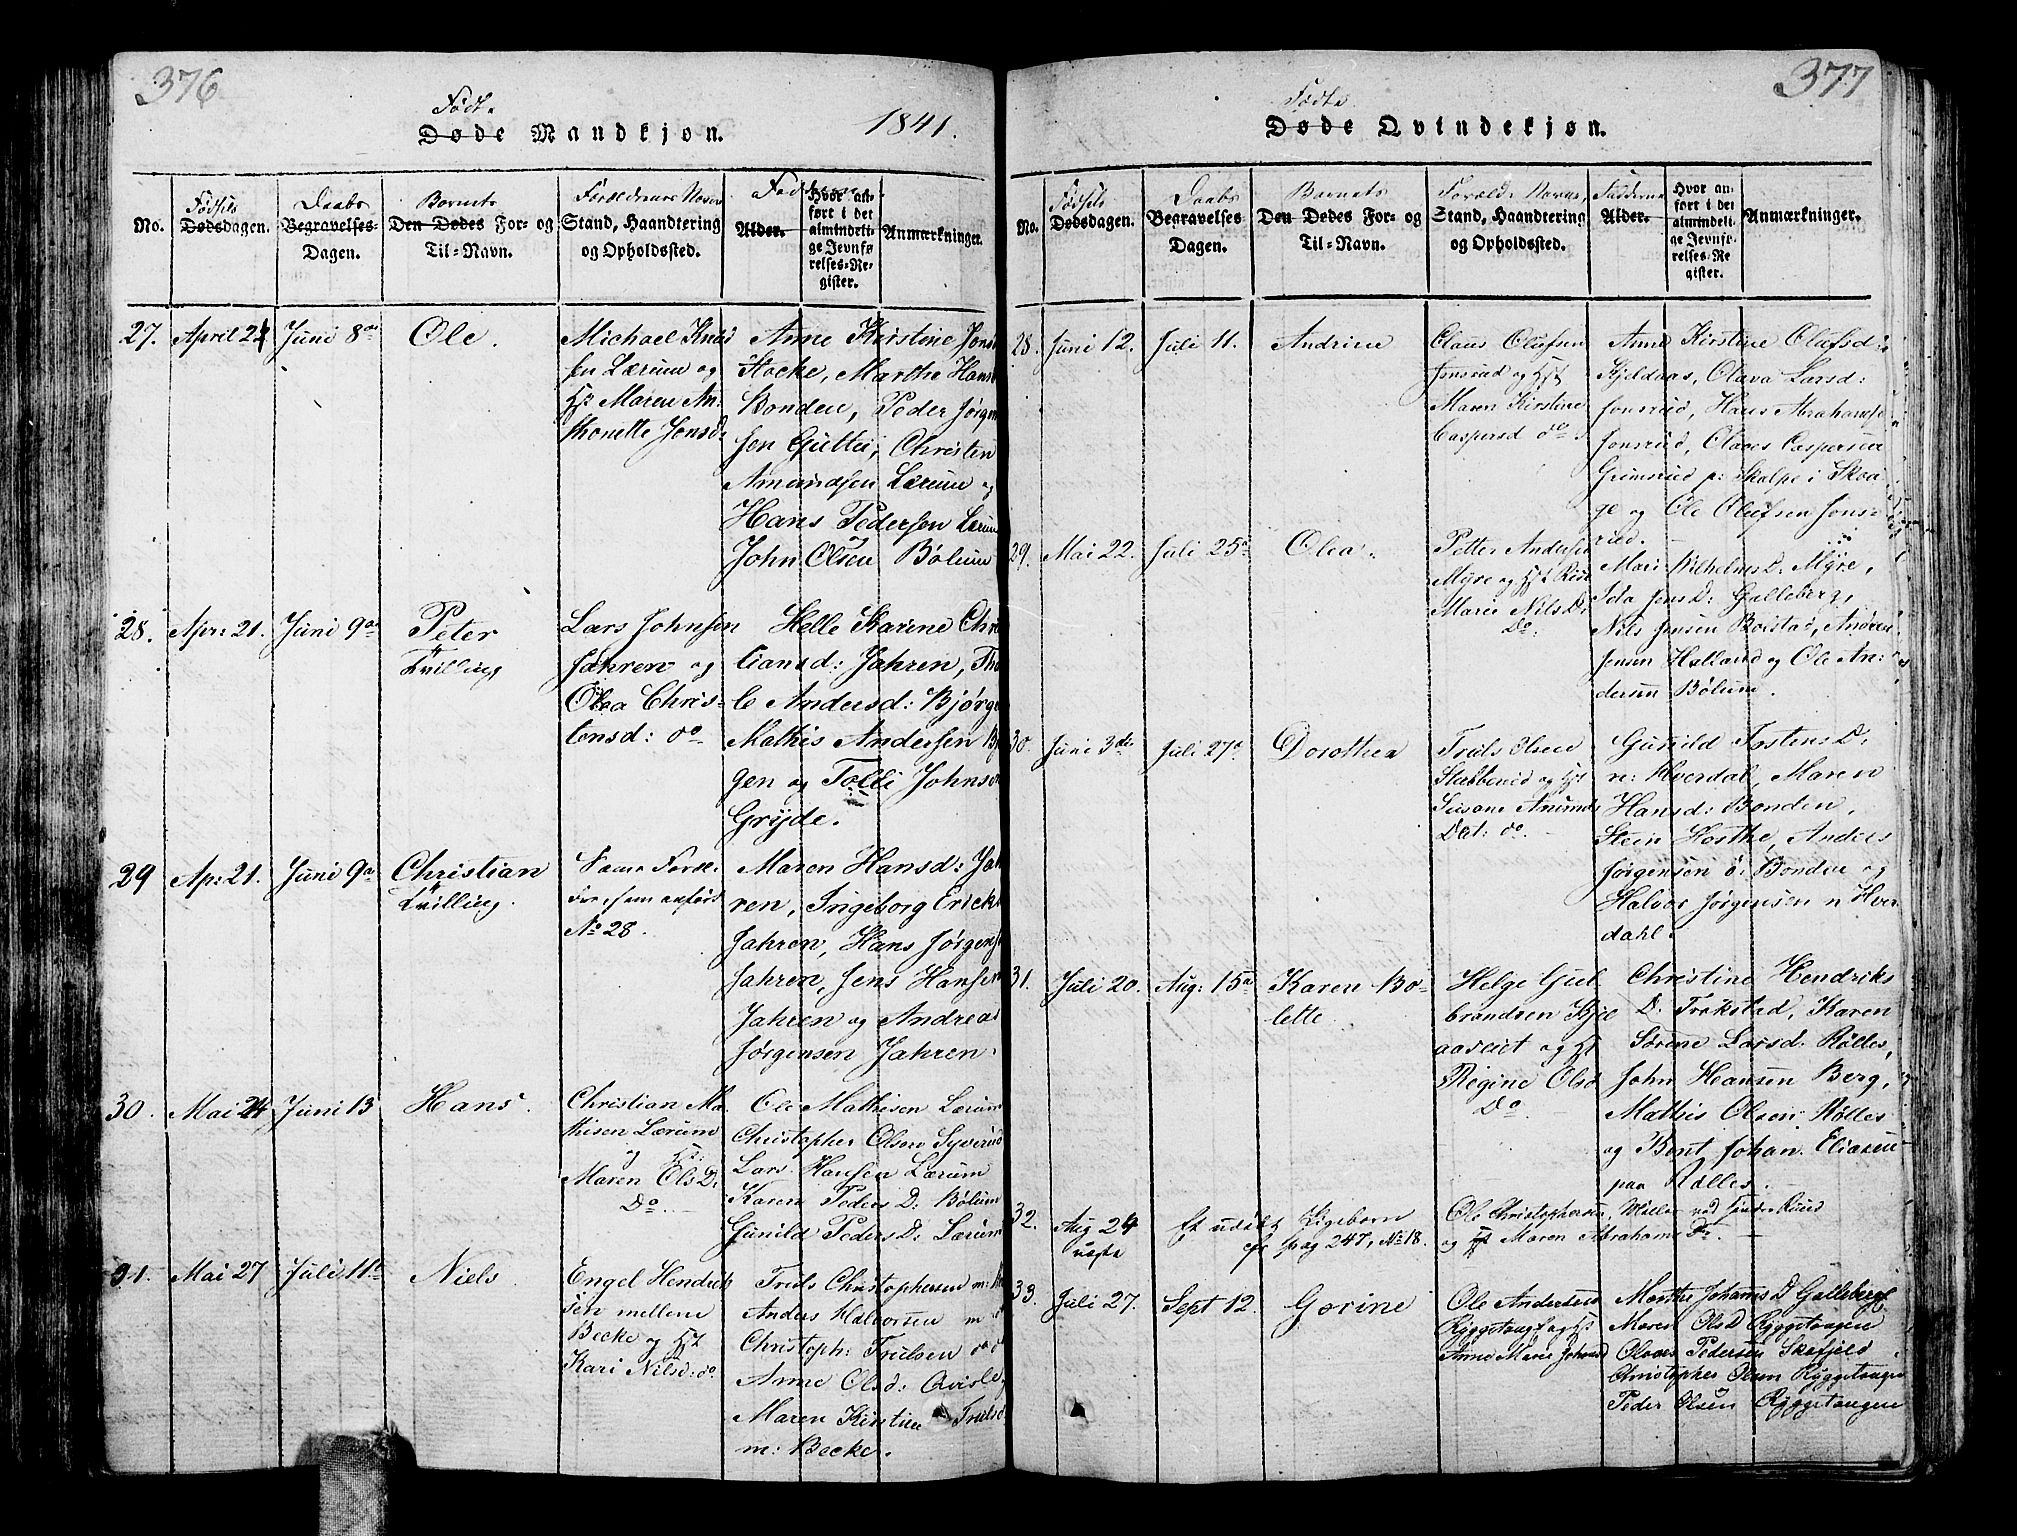 376
Fødte
Døde Mandkjøn.
1841.
No.
Fødsels
Dødsdagen.
Daabs
Begravelses-
Dagen.
Barnets
Den Dødes For- og
Til-Navn.
Forældrenes Navn
Stand, Haandtering
og Opholdssted.
Faddere
Alder.
Hvor an-
ført i det
almindeli-
ge Jevnfø-
relses-Re-
gister.
Anmærkninger.
27. April 21 Juni 8de Ole.
Michael Knud
sen Lærum og
H: Maren An-
thonette Jonsd:
Anne Kirstine Jons
Stocke, Marthe Hans
Bonden, Peder Jørgen
sen Gutte, Christen
Amundsen Lærum og
Hans Pedersen Lærum
John Olsen Bølum
28. Apr: 21. Juni 9de Peter
Tvilling
Lars Johnsen
Jahren og
Olea Chris-
tensd: do
Helle Karine Chri
tiansd: Jahren, Tho
le Andersd: Bjørge
Mathis Andersen B
gen og Tolli Johnsen
Gryde.
29 Ap: 21. Juni 9de Christian
Tvilling.
Samme Foræl
dre som anført
No 28.
Maren Hansd: Jah
ren, Ingeborg Ericks
Jahren, Hans Jørgens
Jahren, Jens Hansen
Jahren og Andreas
Jørgensen Jahren.
30. Mai 24 Juni 13 Hans.
Christian Ma
thisen Lærum
og H:
Maren Ols D:
Do.
Ole Mathisen Lærum
Christopher Olsen Syverud
Lars Hansen Lærum
Karen Peders D: Bølum
Gunild Peders D: Lærum
31. Mai 27 Juli 11te Niels.
Engel Hendrik
sen mellem
Becke og H:
Kari Nilsd: do
Truls Christophersen m:
Anders Halvorsen m
Christoph: Trulsen do
Anne Olsd: Qvisle
Maren Kirstine Trulsd
m: Becke.
377
Fødte
Døde Qvindekjøn.
No.
Fødsels
Dødsdagen.
Daabs
Begravelses
Dagen.
Barnets
Den Dødes For- og
Til-Navn.
Foræld: Navne,
Stand, Haandtering
og Opholdssted.
Fadderne
Alder.
Hvor an-
ført i det
almindeli-
ge Jevnfø-
relses-Re-
gister.
Anmærkninger.
28. Juni 12. Juli 11. Andrine
Claus Olufsen
Jonsrud og H:
Maren Kirstine
Caspersd do.
Anne Kirstine Olafsd:
Kjeldaas, Olava Larsd:
Jonsrud, Hans Abrahams
Jonsrud, Olaves Caspersen
Grimsrud p: Skalpe i Skou
ge og Ole Olufsen Jons-
rud.
29. Mai 22. Juli 25de Olea.
Petter Anders
Myre og H:
Marie Nils D:
Do:
Mari Wilhelms D: Myre,
Ida Jens D: Galleberg,
Nils Jensen Bolstad, Andrea
Jensen Halland og Ole An-
dersen Bølum.
30. Juni 3die Juli 27de Dorothea
Truls Olsen
Stubberud og H:
Susane Amunds
Dat: do
Gunild Tostens D:
n: Hverdal, Maren
Hansd: Bonden,
Stein Horthe, Anders
Jørgensen ø: Bonden og
Halvor Jørgensen n Hver
dahl.
31. Juli 20. Aug: 15de Karen Bo-
lette
Helge Gul
brandsen Kje
aasen og H:
Regine Olsd
Do
Christine Hendriks
D: Trokstad, Karen
Sørene Larsd. Rølles,
John Hansen Berg,
Mathis Olsen: Rølles
og Bent Johan. Eliasen
paa Rølles.
32. Aug 24 Et udøbt Pigebarn
cfr pag 247, No 18.
Ole Christophersen, Møller ved Sønder Ruud
og H Maren Abrahams Dr.
33. Juli 27. Sept 12. Gorine
Ole Andersen
Ryggetangen og H:
Anne Marie Johansd
Marthe Johannes D Galleberg
Maren Ols D Ryggetangen
Olaves Pedersen Skafjeld
Christopher Olsen Ryggetangen
Peder Olsen Ryggetangen